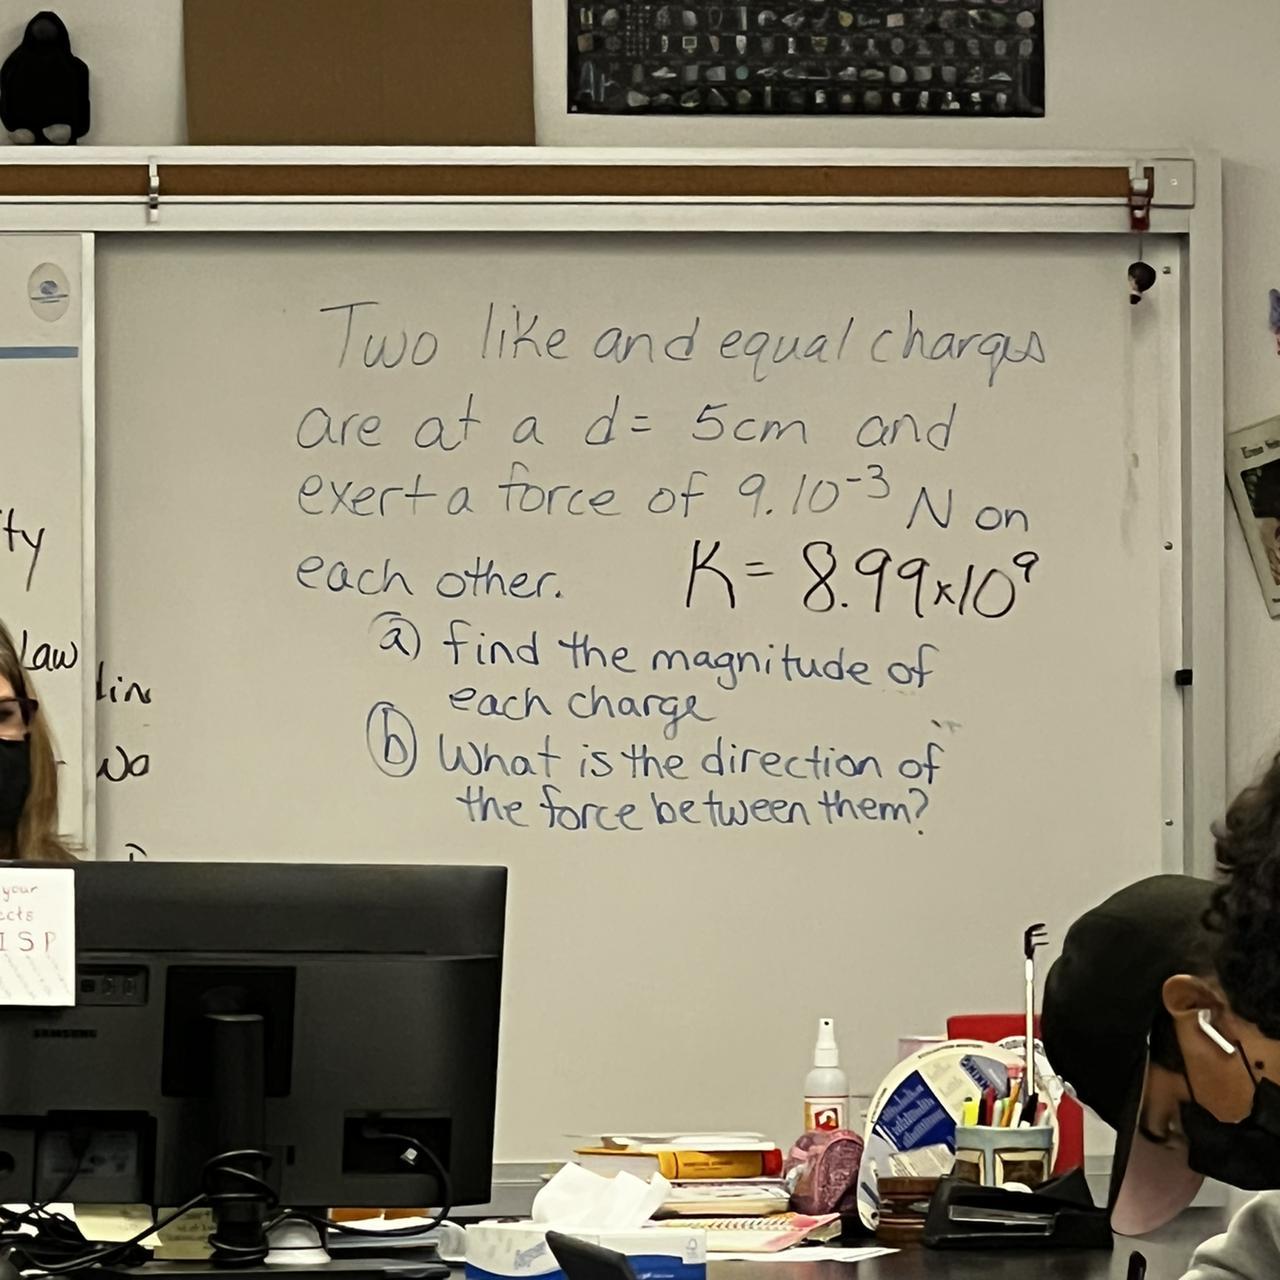 Two like and equal charges
are at a d= 5cm and
exert a force of 9.10⁻³ N on
each other. K= 8.99x10⁹
a) find the magnitude of
each charge
b) What is the direction of
the force between them?
ty
Law
lin
wo
your
ects
ISP
SAMSUNG
F